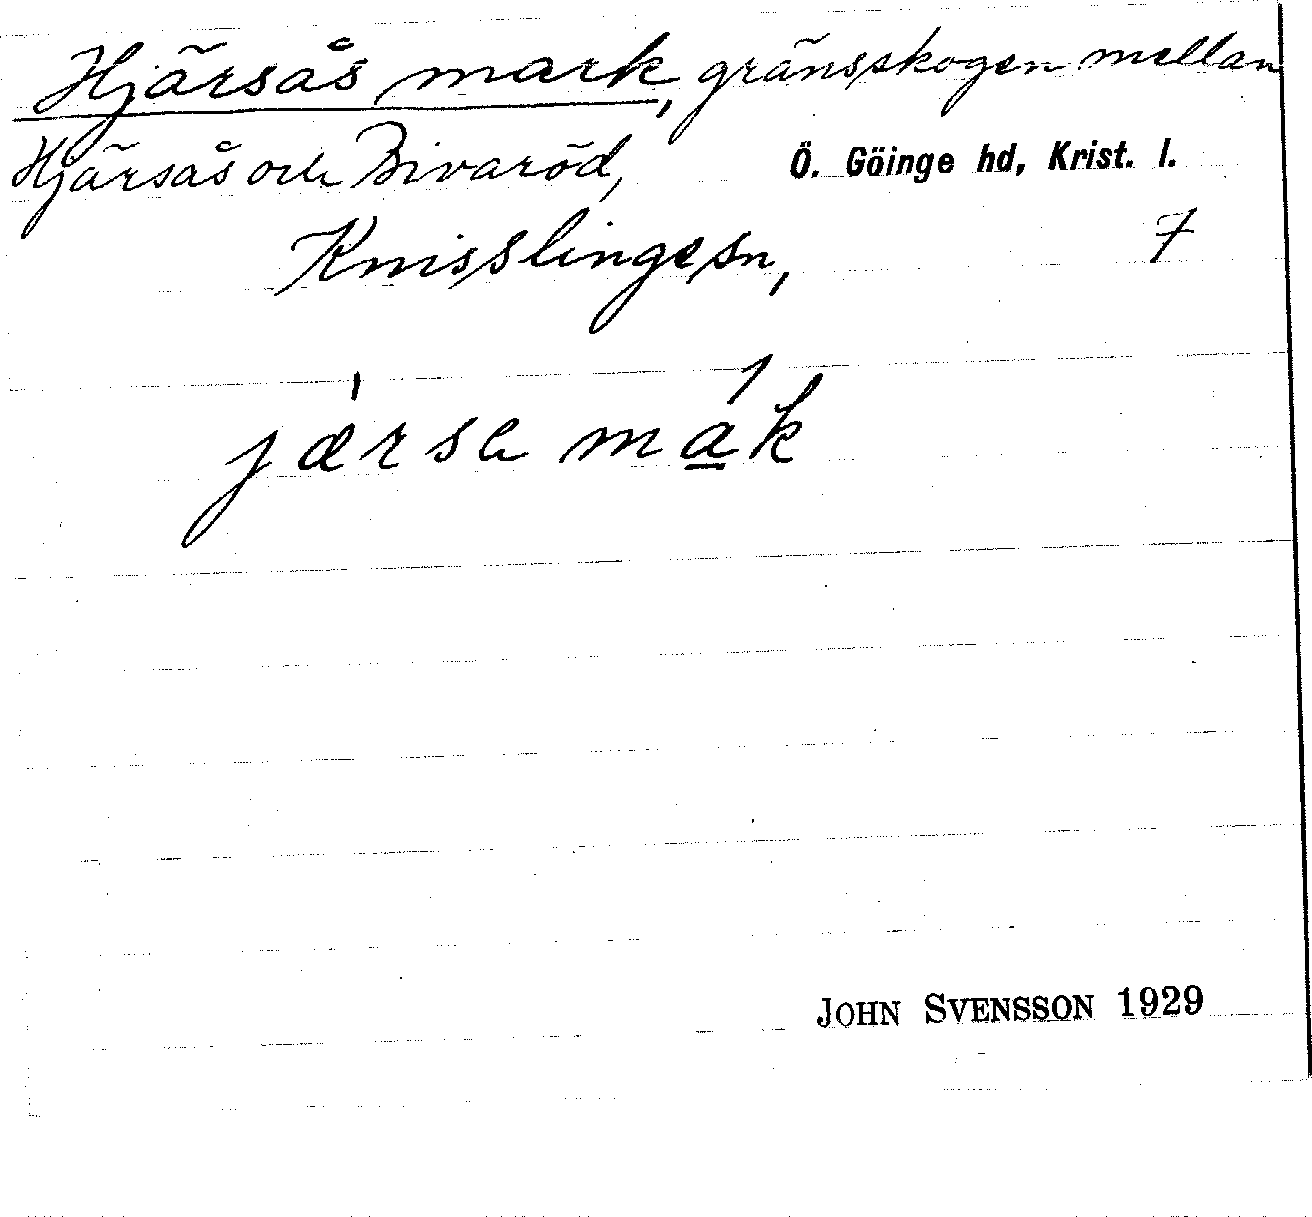 Hjärsås mark, gränsskogen mellan
Hjärsås och Bivaröd, Ö. Göinge hd, Krist. l.
Knisslinge sn, 7
jærsa mak
JOHN SVENSSON 1929